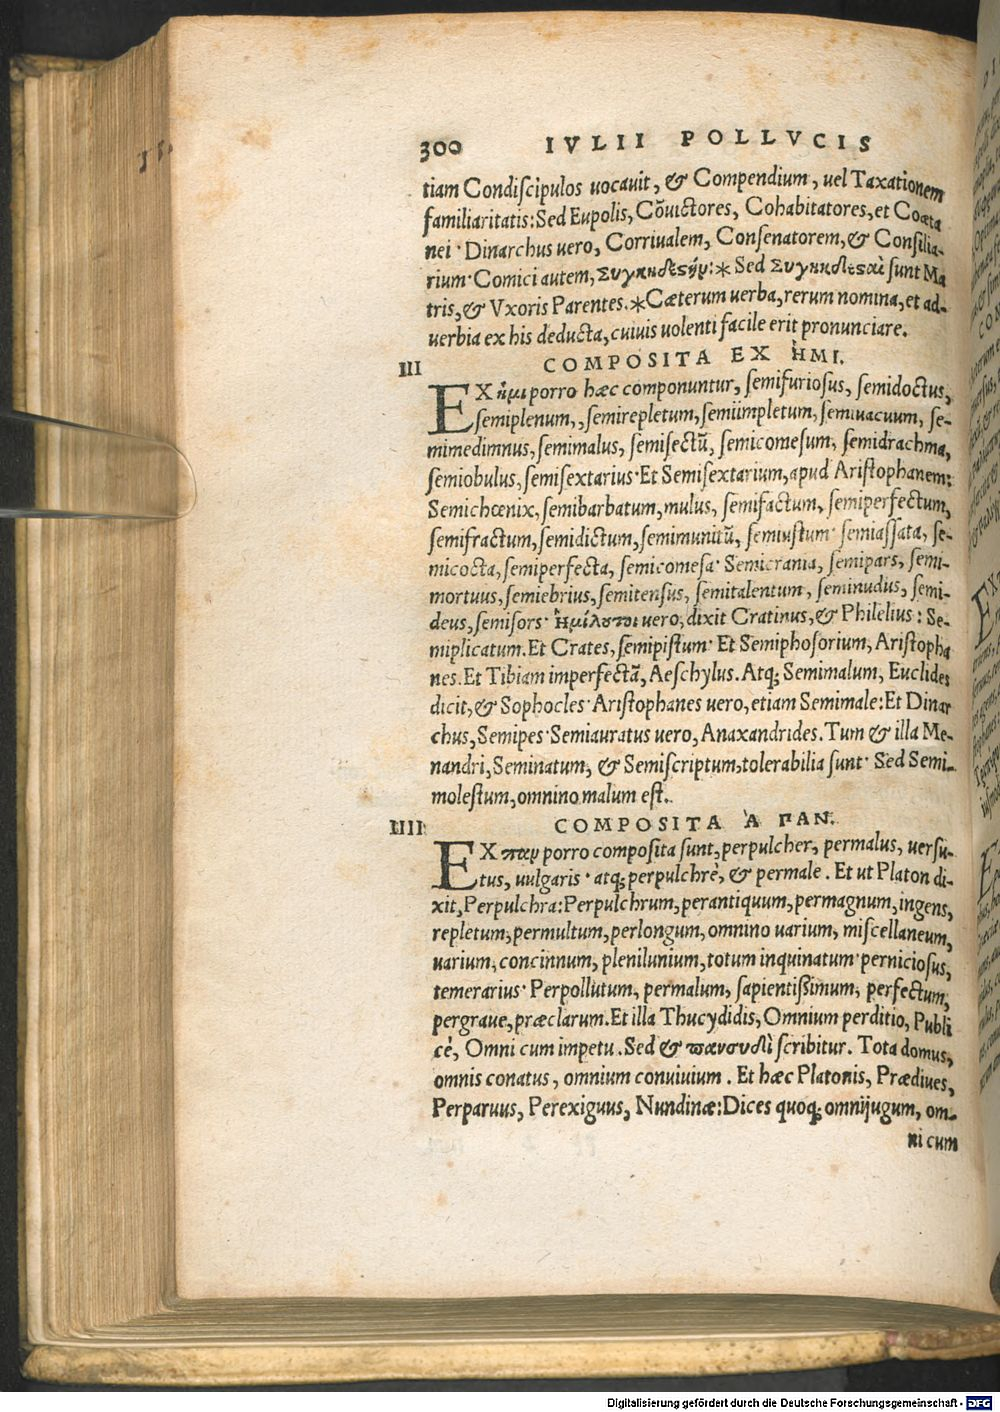 300 IVLII POLLVCIS
tiam Condiscipulos uocauit, & Compendium, uel Taxationem
familiaritatis: Sed Eupolis, Cõuictores, Cohabitatores, et Coæta
nei · Dinarchus uero, Corriualem, Consenatorem, & Consilia-
rium · Comici autem, Συγκηδεστήρ: * Sed Συγκηδεσταὶ sunt Ma
tris, & Vxoris Parentes. * Cæterum uerba, rerum nomina, et ad-
uerbia ex his deducta, cuiuis uolenti facile erit pronunciare.
III COMPOSITA EX ἩΜΙ.
EX ἡμι porro hæc componuntur, semifuriosus, semidoctus,
semiplenum,, semirepletum, semiimpletum, semiuacuum, se-
mimedimnus, semimalus, semisectũ, semicomesum, semidrachma,
semiobulus, semisextarius · Et Semisextarium, apud Aristophanem:
Semichœnix, semibarbatum, mulus, semifactum, semiperfectum,
semifractum, semidictum, semimunitũ, semiustum · semiassata, se-
micocta, semiperfecta, semicomesa · Semicrania, semipars, semi-
mortuus, semiebrius, semitensus, semitalentum, seminudus, semi-
deus, semisors · Ἡμίλοποι uero, dixit Cratinus, & Philelius: Se-
miplicatum. Et Crates, semipistum · Et Semiphosorium, Aristopha
nes. Et Tibiam imperfectã, Aeschylus. Atq; Semimalum, Euclides
dicit, & Sophocles · Aristophanes uero, etiam Semimale: Et Dinar
chus, Semipes · Semiauratus uero, Anaxandrides. Tum & illa Me-
nandri, Seminatum, & Semiscriptum, tolerabilia sunt · Sed Semi-
molestum, omnino malum est.
IIII COMPOSITA À ΠΑΝ.
EX παν porro composita sunt, perpulcher, permalus, uersu-
tus, uulgaris · atq; perpulchrè, & permale. Et ut Platon di-
xit, Perpulchra: Perpulchrum, perantiquum, permagnum, ingens,
repletum, permultum, perlongum, omnino uarium, miscellaneum,
uarium, concinnum, plenilunium, totum inquinatum · perniciosus,
temerarius · Perpollutum, permalum, sapientissimum, perfectum,
pergraue, præclarum. Et illa Thucydidis, Omnium perditio, Publi
cè, Omni cum impetu. Sed & πανσυδὶ scribitur. Tota domus,
omnis conatus, omnium conuiuium. Et hæc Platonis, Prædiues,
Perparuus, Perexiguus, Nundinæ: Dices quoq; omnijugum, om-
ni cum
Digitalisierung gefördert durch die Deutsche Forschungsgemeinschaft - DFG